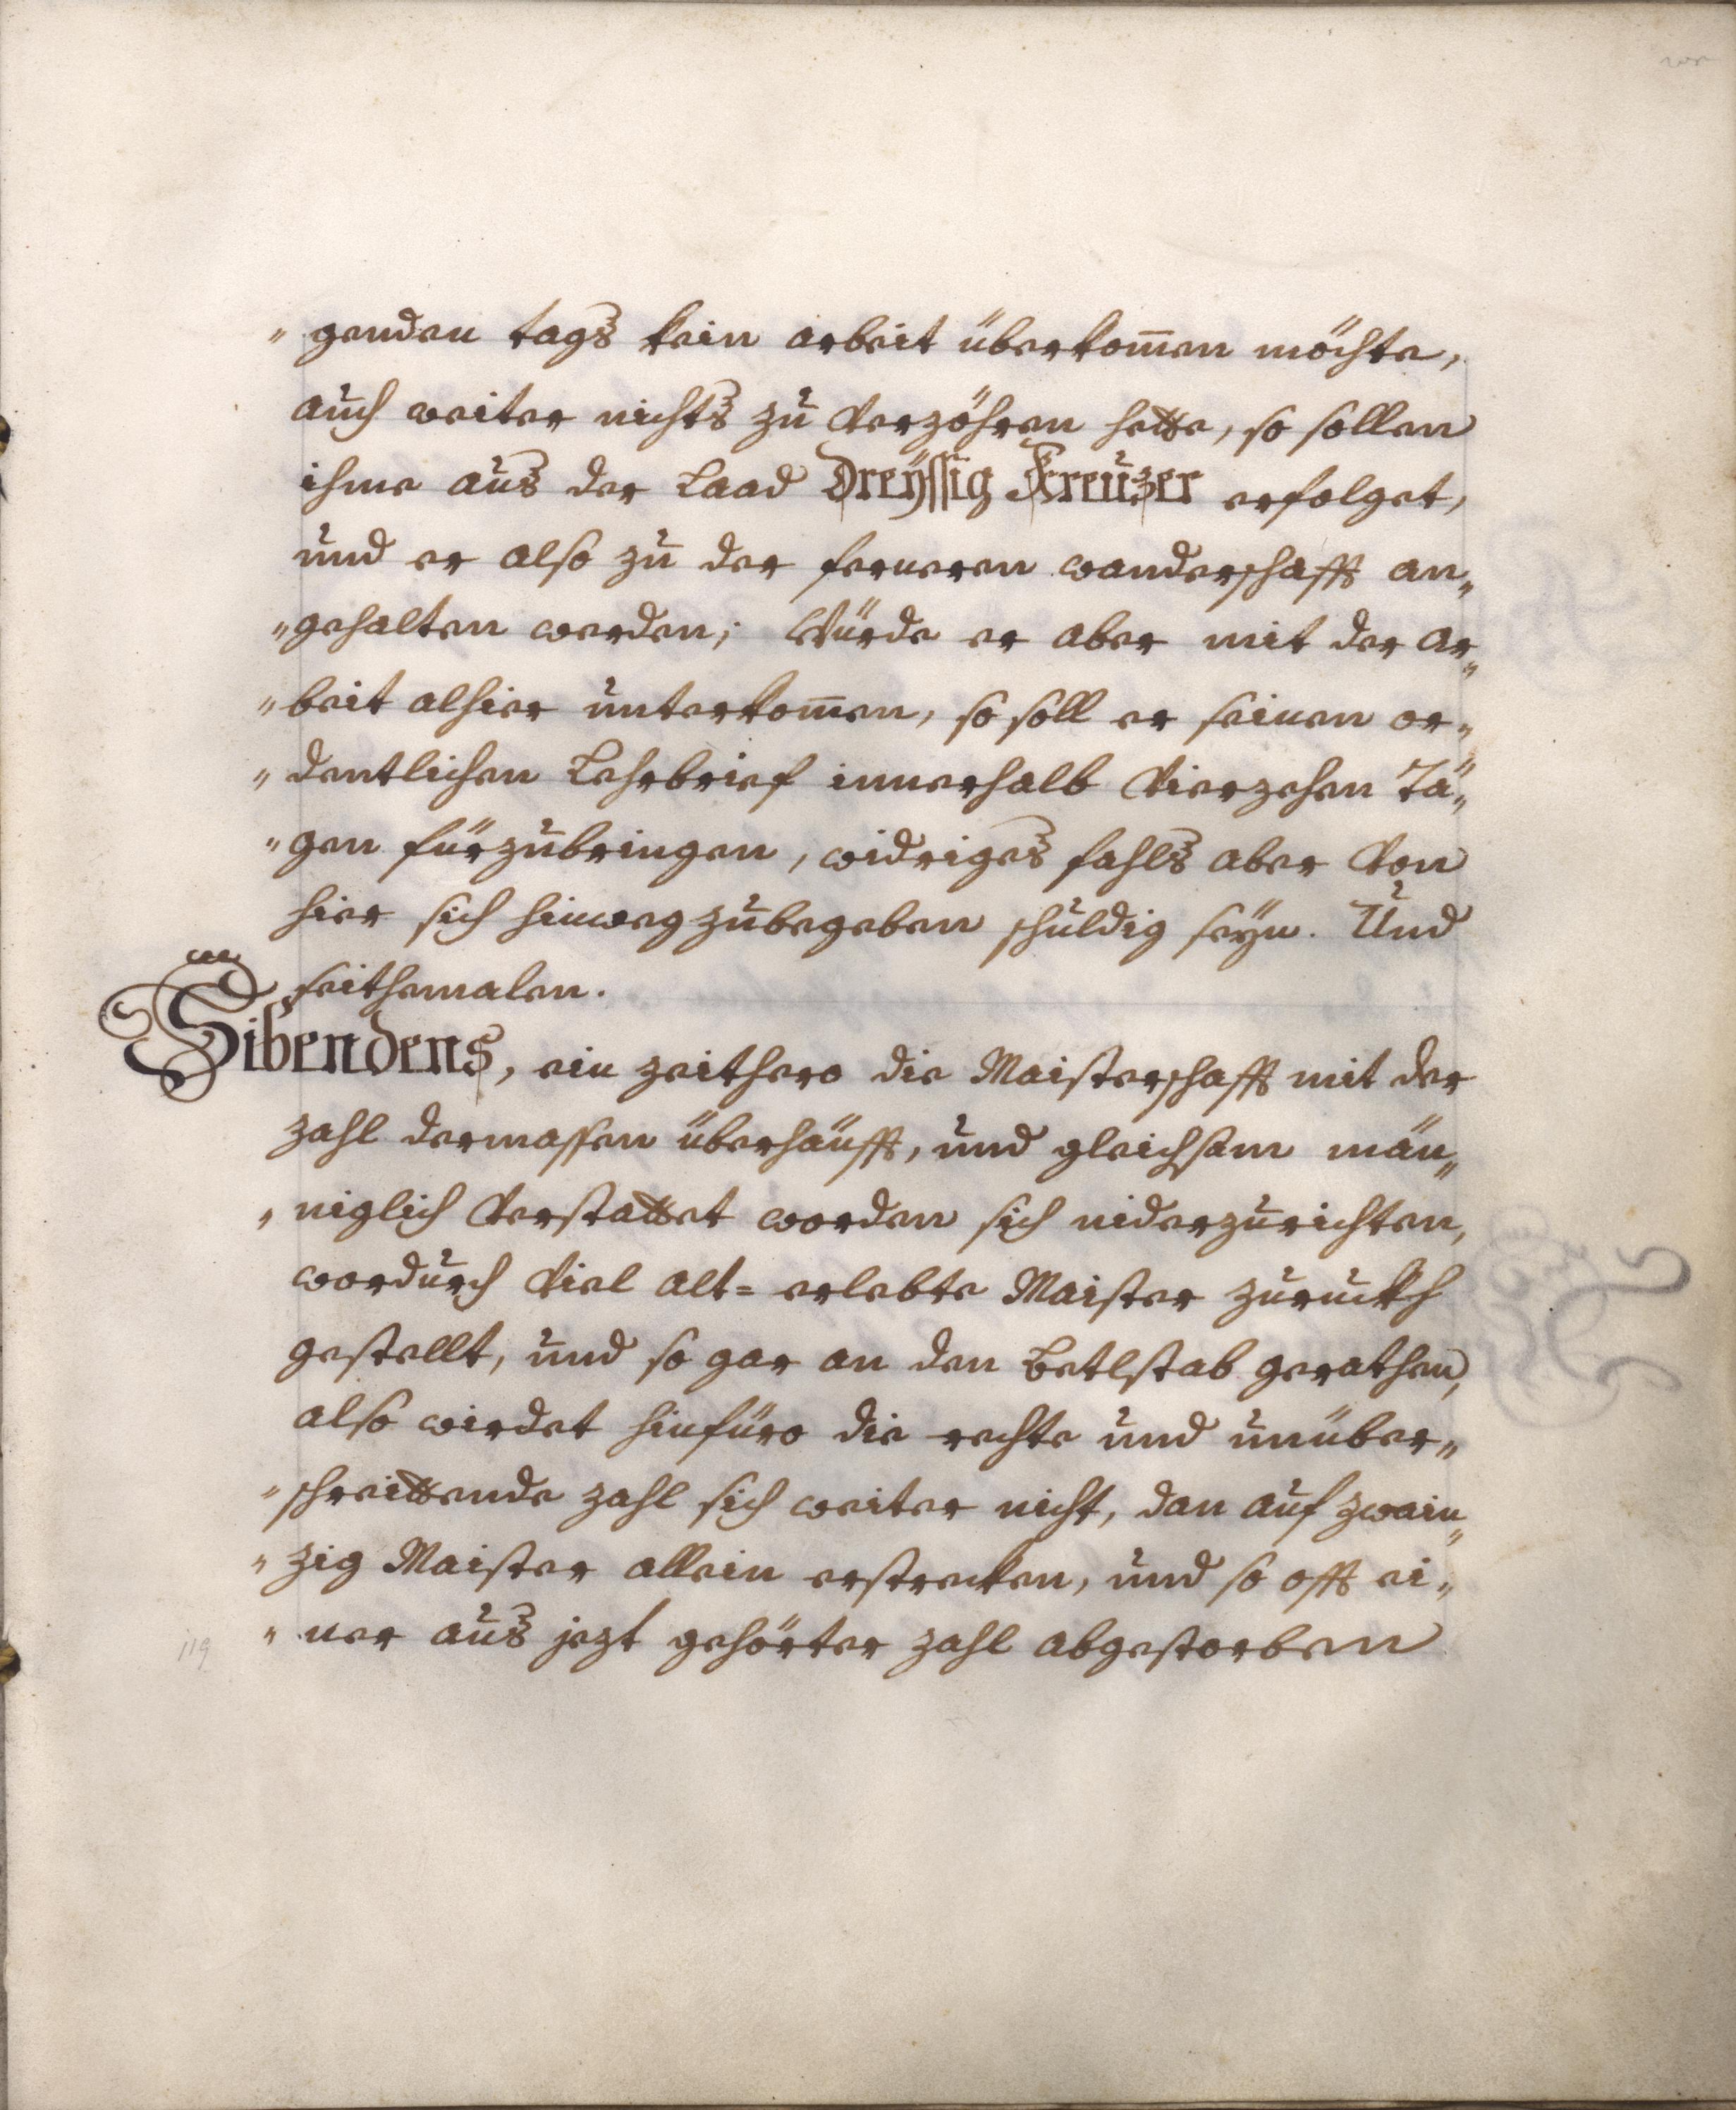 „genden tags kein arbeit überkom̄en möchte,
auch weiter nichts zu verzöhren hette, so sollen
ihme aus der Laad Dreÿssig Kreüzer erfolget,
und er also zu der ferneren wanderschafft an„
„gehalten werden; Würde er aber mit der ar„
„beit alhier unterkom̄en, so soll er seinen or„
„dentlichen Lehrbrief innerhalb vierzehen Tä„
„gen fürzubringen, widriges fahls aber von
hier sich hinweg zubegeben schuldig seyn. Und
seithemalen.
Sibendens, ein zeithero die Maisterschafft mit der
zahl dermassen überhäufft, und gleichsam män„
„niglich verstattet worden sich niderzurichten,
wordurch viel alt= erlebte Maister zuruckh
gestellt, und so gar an den betlstab gerathen,
also wirdet hinfüro die rechte und unüber„
„schreittende zahl sich weiter nicht, dan auf zwain„
„zig Maister allein erstrecken, und so offt ei„
„ner aus jezt gehörter zahl abgestorben
119